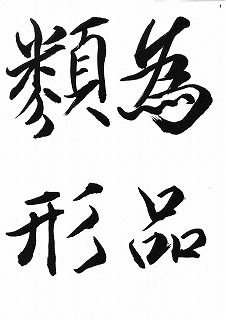 為品
類形